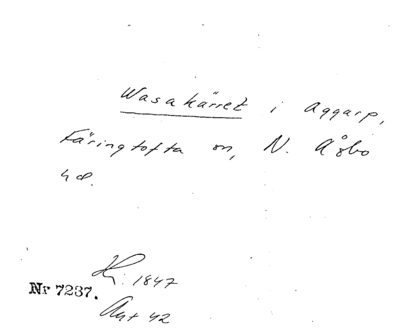 Wasakärret i Aggarp,
Färingtofta sn, N. Åsbo
hd.
Kr. 1847
Nr 7237.
Avt 42